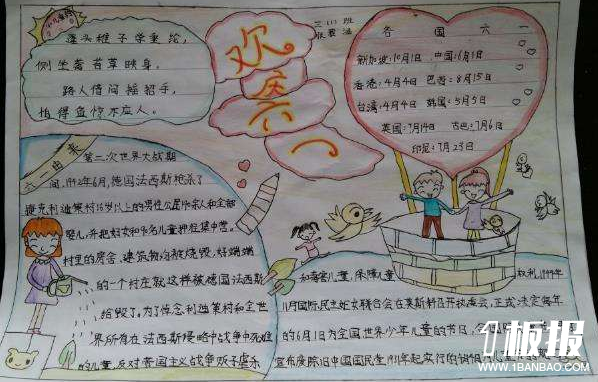 蓬头稚子学垂纶,
侧坐莓苔草映身。
路人借问遥招手,
怕得鱼惊不应人。
欢庆六一
三(1)班
各国六一
新加坡:10月1日 中国:6月1日
香港:4月4日 巴西:8月15日
台湾:4月4日 韩国:5月5日
英国:7月14日 古巴:7月6日
印尼:7月23日
六一由来
第二次世界大战期
间,1942年6月,德国法西斯枪杀了
捷克利迪策村16岁以上的男性公民140余人和全部
婴儿,并把妇女和90名儿童押往集中营。
村里的房舍、建筑物均被烧毁,好端端
的一个村庄就这样被德国法西斯
给毁了,为了悼念利迪策村和全世
界所有在法西斯侵略中战争死难
的儿童,反对帝国主义战争贩子虐杀
和毒害儿童,保障儿童 权利,1949年
11月国际民主妇女联合会在莫斯科召开执委会,正式决定每年
的6月1日为全国世界少年儿童的节日,
宣布废除旧中国国民党1931年起实行的
1板报
WWW.1BANBAO.COM